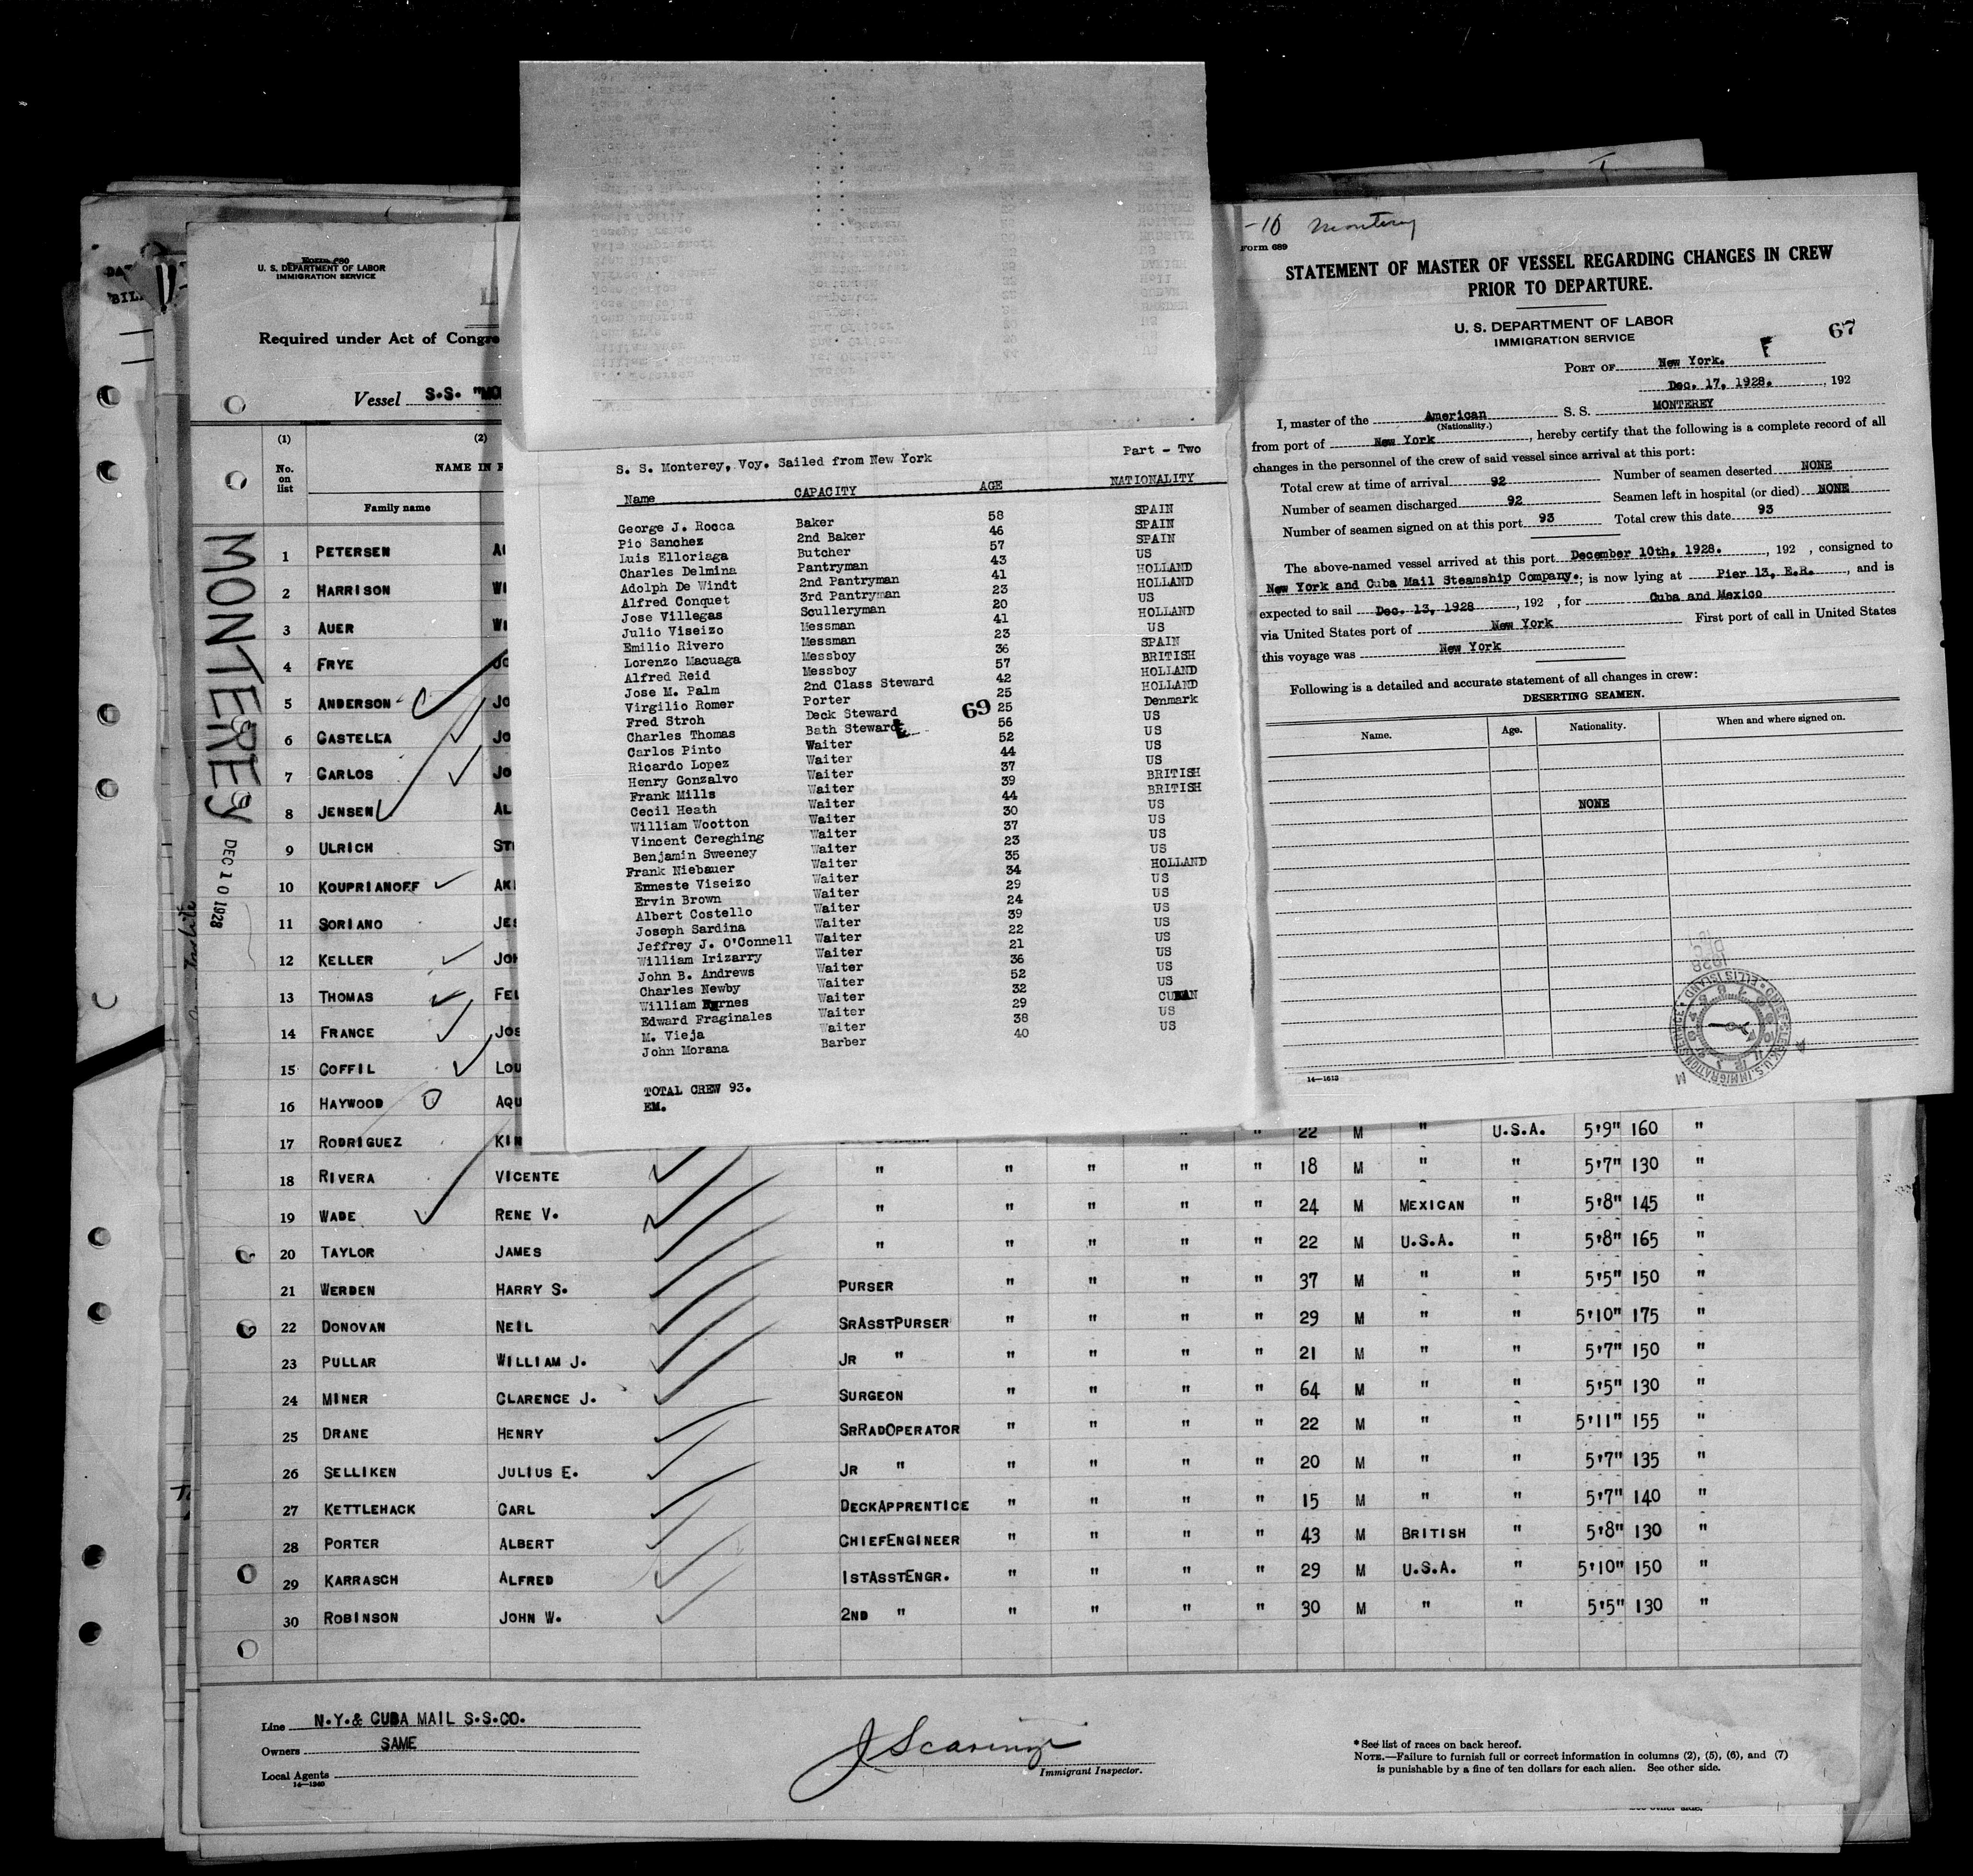 Form 680
U. S. DEPARTMENT OF LABOR
IMMIGRATION SERVICE
Required under Act of Congre
Vessel S.S. "MO
(1) (2)
No. on list NAME IN F
Family name
MONTEREY
DEC 10 1928
1 PETERSEN
2 HARRISON
3 AUER
4 FRYE
5 ANDERSON JO
6 CASTELLA JO
7 CARLOS JO
8 JENSEN AL
9 ULRICH ST
10 KOUPRIANOFF AK
11 SORIANO JES
12 KELLER JOH
13 THOMAS FEL
14 FRANCE JOS
15 COFFIL LOU
16 HAYWOOD AQU
17 RODRIGUEZ KIN " " 22 M " U.S.A. 5'9" 160 "
18 RIVERA VICENTE " " " " " 18 M " " 5'7" 130 "
19 WADE RENE V. " " " " " 24 M MEXICAN " 5'8" 145 "
20 TAYLOR JAMES " " " " " 22 M U.S.A. " 5'8" 165 "
21 WERDEN HARRY S. PURSER " " " " 37 M " " 5'5" 150 "
22 DONOVAN NEIL SRASSTPURSER " " " " 29 M " " 5'10" 175 "
23 PULLAR WILLIAM J. JR " " " " " 21 M " " 5'7" 150 "
24 MINER CLARENCE J. SURGEON " " " " 64 M " " 5'5" 130 "
25 DRANE HENRY SRRADOPERATOR " " " " 22 M " " 5'11" 155 "
26 SELLIKEN JULIUS E. JR " " " " " 20 M " " 5'7" 135 "
27 KETTLEHACK CARL DECKAPPRENTICE " " " " 15 M " " 5'7" 140 "
28 PORTER ALBERT CHIEFENGINEER " " " " 43 M BRITISH " 5'8" 130 "
29 KARRASCH ALFRED 1STASSTENGR. " " " " 29 M U.S.A. " 5'10" 150 "
30 ROBINSON JOHN W. 2ND " " " " " 30 M " " 5'5" 130 "
Line N.Y.& CUBA MAIL S.S.CO.
Owners SAME
Local Agents
14—1240
Immigrant Inspector.
*See list of races on back hereof.
NOTE.—Failure to furnish full or correct information in columns (2), (5), (6), and (7)
is punishable by a fine of ten dollars for each alien. See other side.
Part - Two
S. S. Monterey, Voy. Sailed from New York
Name CAPACITY AGE NATIONALITY
George J. Rocca Baker 58 SPAIN
Pio Sanchez 2nd Baker 46 SPAIN
Luis Elloriaga Butcher 57 SPAIN
Charles Delmina Pantryman 43 US
Adolph De Windt 2nd Pantryman 41 HOLLAND
Alfred Conquet 3rd Pantryman 23 HOLLAND
Jose Villegas Sculleryman 20 US
Julio Viseizo Messman 41 HOLLAND
Emilio Rivero Messman 23 US
Lorenzo Macuaga Messboy 36 SPAIN
Alfred Reid Messboy 57 BRITISH
Jose M. Palm 2nd Class Steward 42 HOLLAND
Virgilio Romer Porter 25 HOLLAND
Fred Stroh Deck Steward 25 Denmark
69
Charles Thomas Bath Steward 56 US
Carlos Pinto Waiter 52 US
Ricardo Lopez Waiter 44 US
Henry Gonzalvo Waiter 37 US
Frank Mills Waiter 39 BRITISH
Cecil Heath Waiter 44 BRITISH
William Wootton Waiter 30 US
Vincent Cereghing Waiter 37 US
Benjamin Sweeney Waiter 23 US
Frank Niebauer Waiter 35 US
Erneste Viseizo Waiter 34 HOLLAND
Ervin Brown Waiter 29 US
Albert Costello Waiter 24 US
Joseph Sardina Waiter 39 US
Jeffrey J. O'Connell Waiter 22 US
William Irizarry Waiter 21 US
John B. Andrews Waiter 36 US
Charles Newby Waiter 52 US
William Burnes Waiter 32 US
Edward Fraginales Waiter 29 CUBAN
M. Vieja Waiter 38 US
John Morana Barber 40 US
TOTAL CREW 93.
EM.
-10 Monterey
Form 689
STATEMENT OF MASTER OF VESSEL REGARDING CHANGES IN CREW
PRIOR TO DEPARTURE.
U. S. DEPARTMENT OF LABOR
IMMIGRATION SERVICE
67
PORT OF New York. F
Dec. 17, 1928. , 192
I, master of the American S. S. MONTEREY
(Nationality.)
from port of New York, hereby certify that the following is a complete record of all
changes in the personnel of the crew of said vessel since arrival at this port:
Total crew at time of arrival 92 Number of seamen deserted NONE
Number of seamen discharged 92 Seamen left in hospital (or died) NONE
Number of seamen signed on at this port 93 Total crew this date 93
The above-named vessel arrived at this port December 10th, 1928. , 192 , consigned to
New York and Cuba Mail Steamship Company.; is now lying at Pier 13, E.R. , and is
expected to sail Dec. 13, 1928 , 192 , for Cuba and Mexico
via United States port of New York First port of call in United States
this voyage was New York
Following is a detailed and accurate statement of all changes in crew:
DESERTING SEAMEN.
Name. Age. Nationality. When and where signed on.
NONE
14—1613